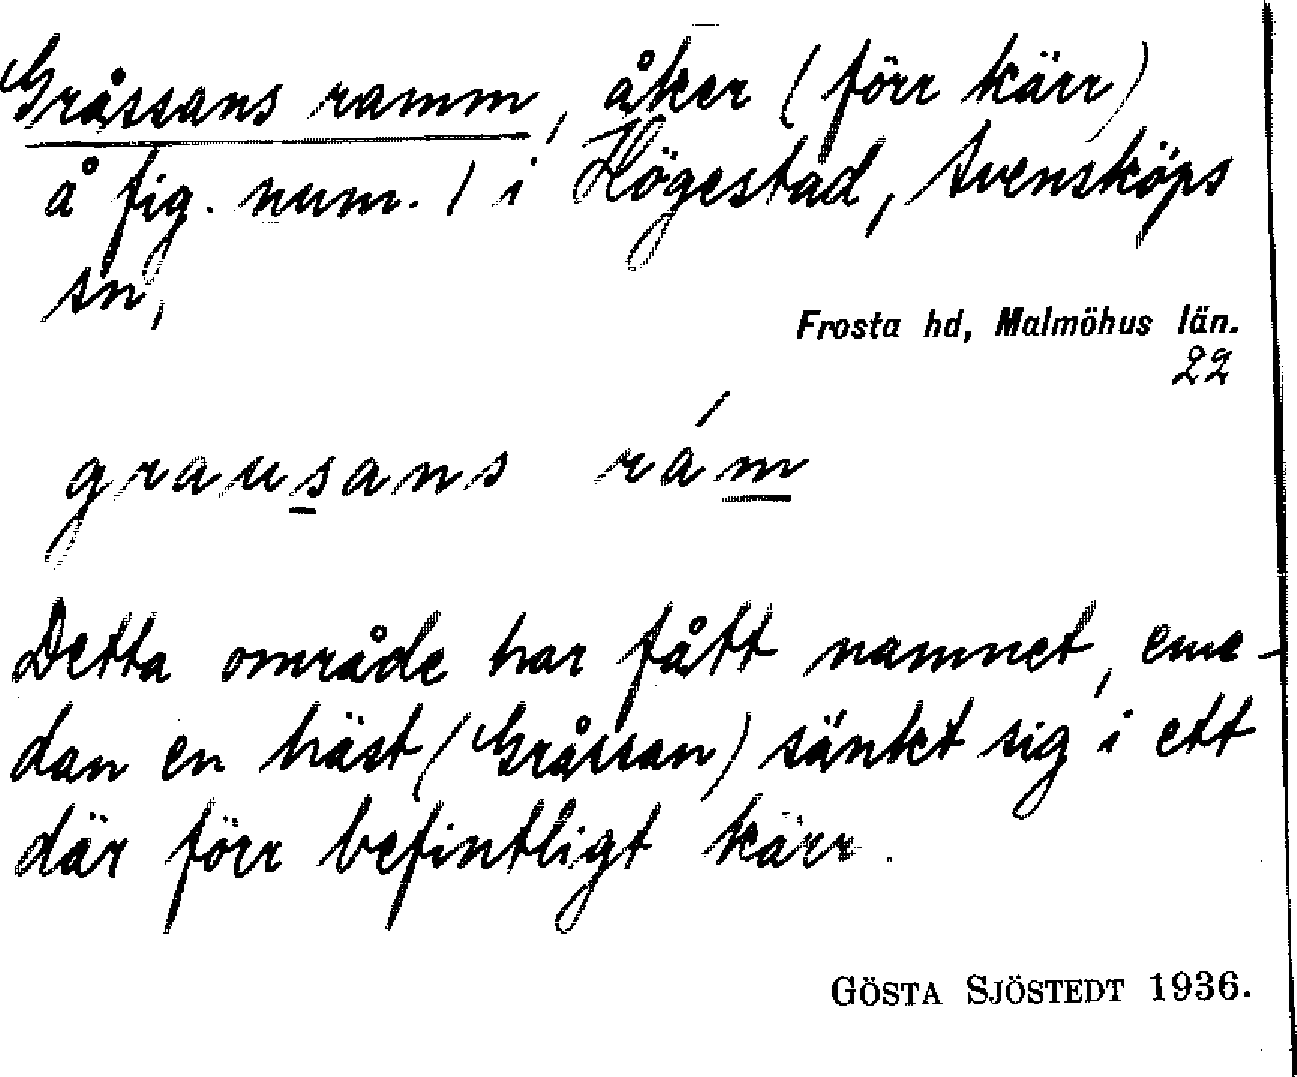 Gråssans ramm, åker (förr kärr)
å fig. num. 1 i Högestad, Svensköps
sn,
Frosta hd, Malmöhus län.
22
grausans rám
Detta område har fått namnet, eme-
dan en häst (Gråssan) sänkt sig i ett
där förr befintligt kärr.
GÖSTA SJÖSTEDT 1936.